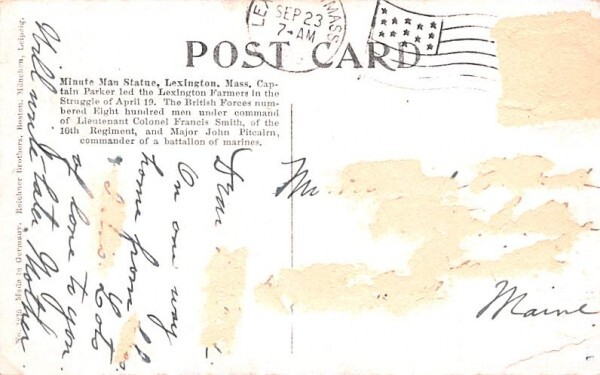 LE
MASS.
SEP 23
7-AM
POST CARD
Minute Man Statue, Lexington, Mass. Cap-
tain Parker led the Lexington Farmers in the
Struggle of April 19. The British Forces num-
bered Eight hundred men under command
of Lieutenant Colonel Francis Smith, of the
10th Regiment, and Major John Pitcairn,
commander of a battalion of marines.
Made in Germany. Reichner Brothers, Boston, München, Leipzig.
Dear
On our way
home from
Lots
of love to you.
Will write later Mother
Maine